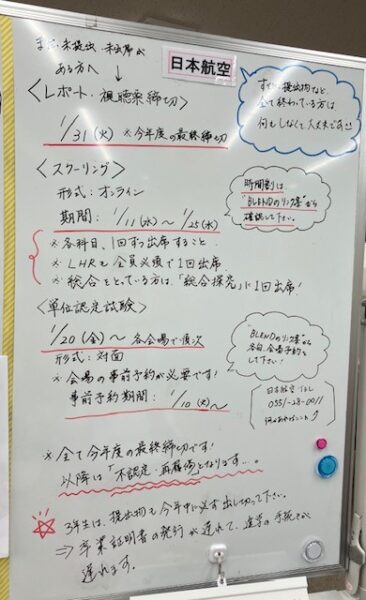 まだ、未提出・未出席が
ある方へ ↓
日本航空
すでに提出物など、
全て終わっている方は
何もしなくて大丈夫です!!
〈レポート・視聴票締切〉
1/31(火) ※今年度の最終締切
〈スクーリング〉
形式:オンライン
期間:1/11(水)〜1/25(水)
時間割は
"BLENDのリンク集"から
確認して下さい。
※各科目、1回ずつ出席すること
※LHRも全員必須で1回出席
※総合をとっている方は、「総合探究」に1回出席!
〈単位認定試験〉
1/20(金)〜 各会場で順次
形式:対面
※会場の事前予約が必要です!
事前予約期間:1/10(火)〜
"BLENDのリンク集"から
各自、会場予約を
して下さい!
日本航空 TEL
0551-28-0011
何かあればここに
※全て今年度の最終締切です!
以降は「不認定・再履修」となります…。
☆3年生は、提出物も今年中に必ず出し切って下さい。
⇒卒業証明書の発行が遅れて、進学の手続きが
遅れます。